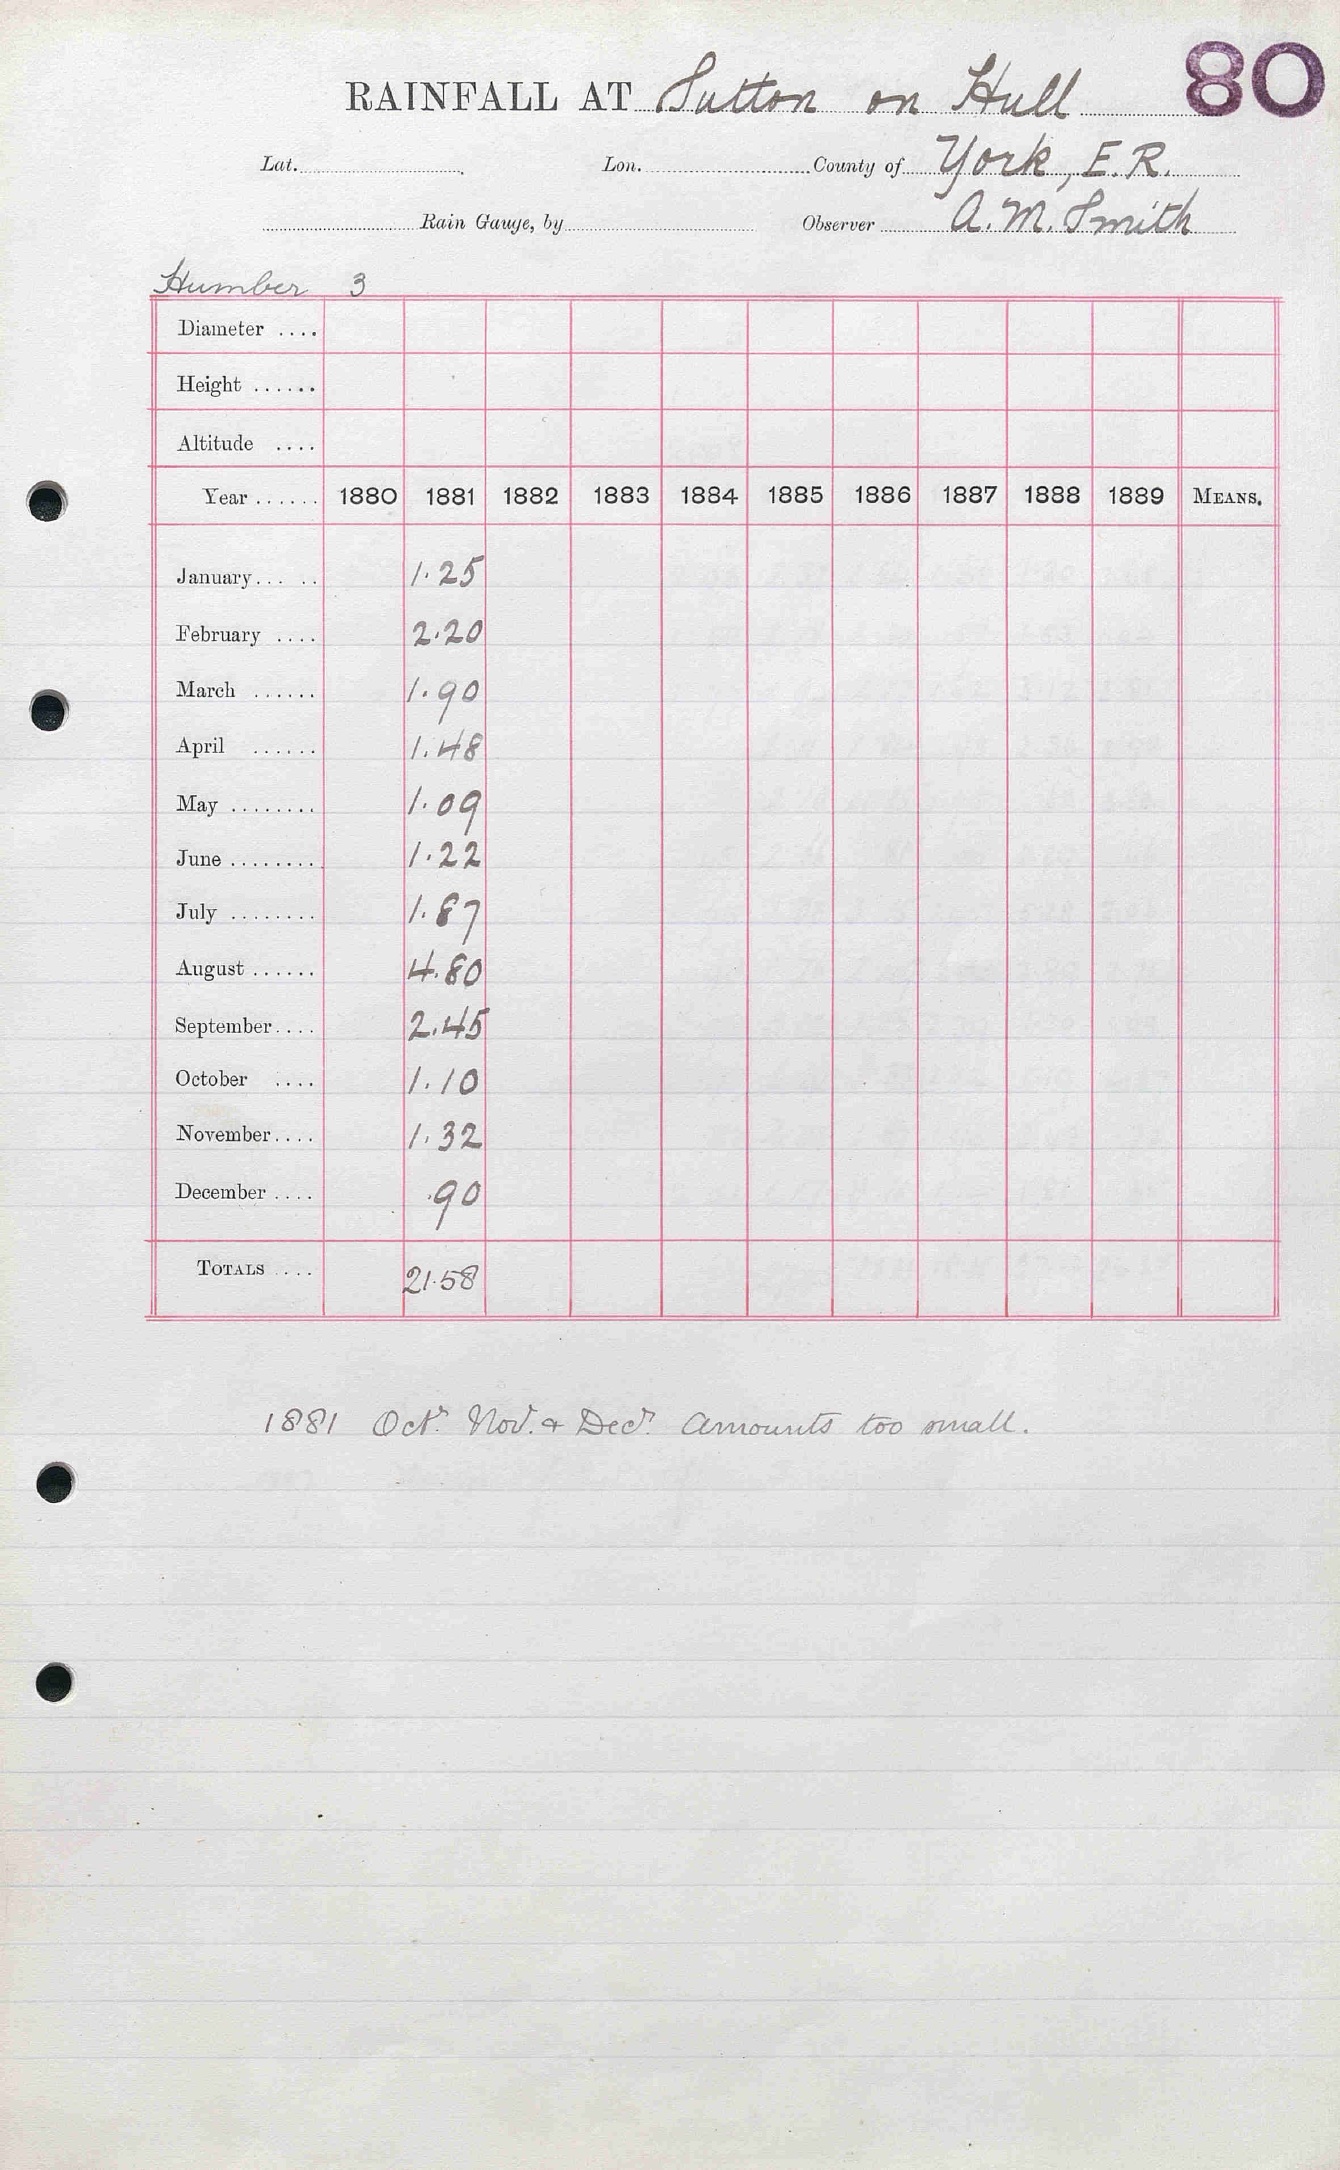 80
RAINFALL AT Sutton on Hull
Lat. Lon. County of York, E.R.
Rain Gauge, by Observer A.M. Smith
Humber 3
Diameter ....
Height ......
Altitude ....
Year ...... 1880 1881 1882 1883 1884 1885 1886 1887 1888 1889 MEANS.
January... .. 1.25
February .... 2.20
March ...... 1.90
April ...... 1.48
May ........ 1.09
June ......... 1.22
July ........ 1.87
August ...... 4.80
September.... 2.45
October .... 1.10
November.... 1.32
December .... .90
TOTALS .... 21.58
1881 Octr. Nov. & Decr. amounts too small.